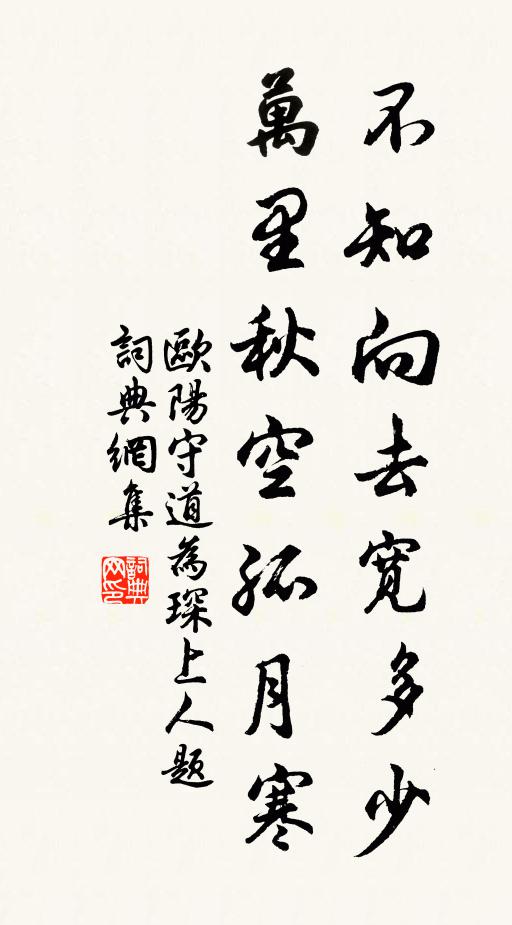 不知向去寬多少
萬里秋空孤月寒
歐陽守道為琛上人題
詞典網集
詞典网印